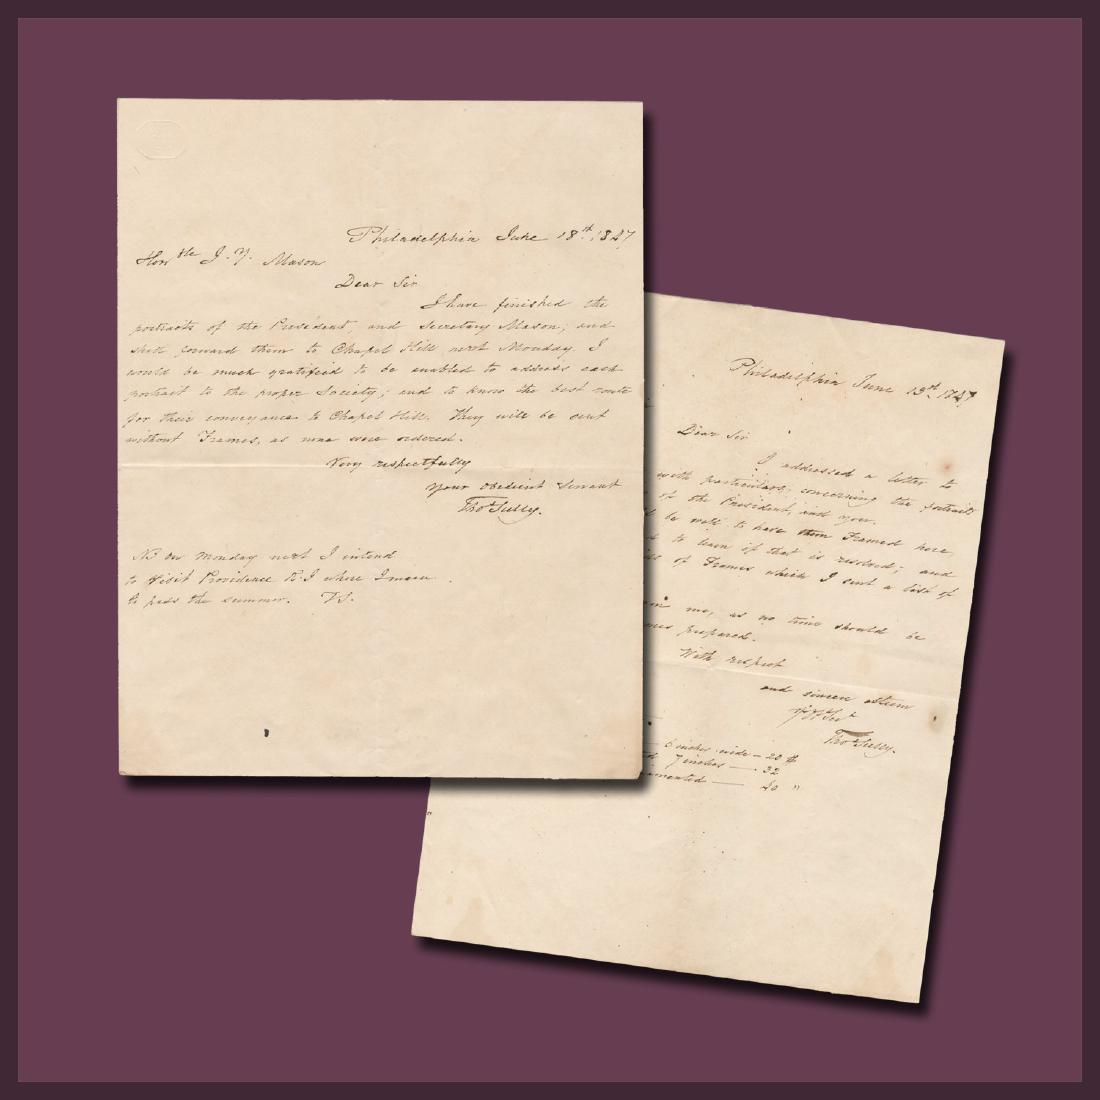 Philadelphia June 18th, 1847
Honble J. Y. Mason
Dear Sir
I have finished the
portraits of the President, and Secretary Mason; and
shall forward them to Chapel Hill next Monday. I
would be much gratified to be enabled to address each
portrait to the proper Society; and to know the best route
for their conveyance to Chapel Hill. They will be sent
without Frames, as none were ordered.
Very respectfully
Your obedient Servant
Thos Sully.
NB on Monday next I intend
to visit Providence R.I where I mean
to pass the summer. TS.
Philadelphia June 13th
Dear Sir
I addressed a letter to
with particulars, concerning the portraits
of the President, and you.
be well to have them Framed here,
to learn if that is resolved; and
of Frames which I sent a list of
me, as no time should be
prepared.
With respect
and sincere esteem
Thos Sully.
6 inches wide — 20 $
7 inches — 32
— 40 "